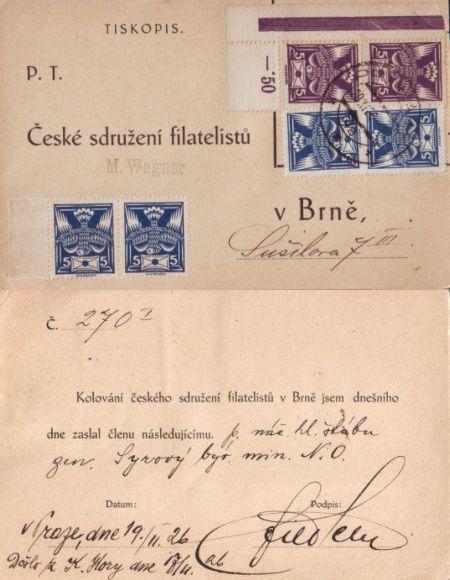 TISKOPIS.
P. T.
—'50
České sdružení filatelistů
M. Wagner
v Brně,
Sušilova 7 III
5 5
5 5
5 5
č. 270 I
Kolování českého sdružení filatelistů v Brně jsem dnešního
dne zaslal členu následujícímu. p. náč. hl. štábu
gen. Syrový býv. min. N. O.
Datum: Podpis:
v Praze, dne 19./II. 26
Došlo z K. Hory dne /II. 26